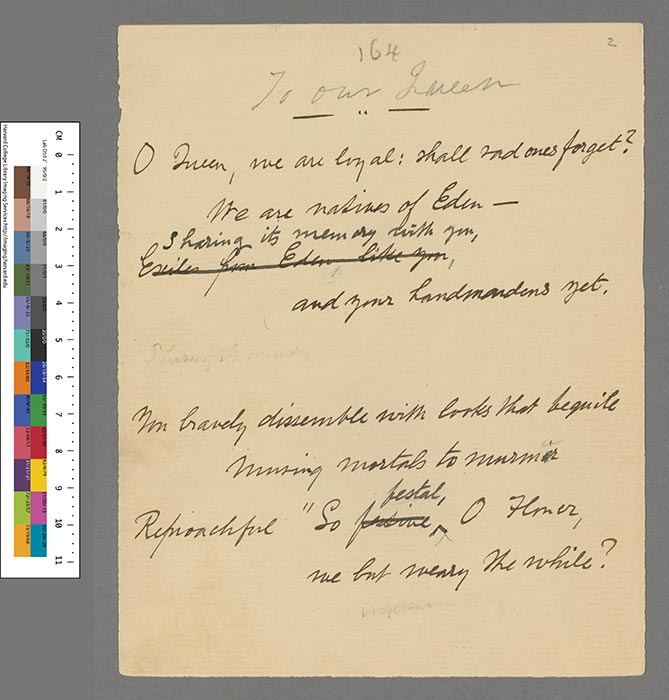 164
2
To our Queen
O Queen, we are loyal: shall sad ones forget?
We are natives of Eden —
Sharing its memory with you,
Exiles from Eden like you,
and your handmaidens yet.
Sharing its memory
You bravely dissemble with looks that beguile
Musing mortals to murmur
festal,
Reproachful "So festive, O Flower,
we but weary the while?
CM 0 1 2 3 4 5 6 7 8 9 10 11
Harvard College Library Imaging Services http://imaging.harvard.edu